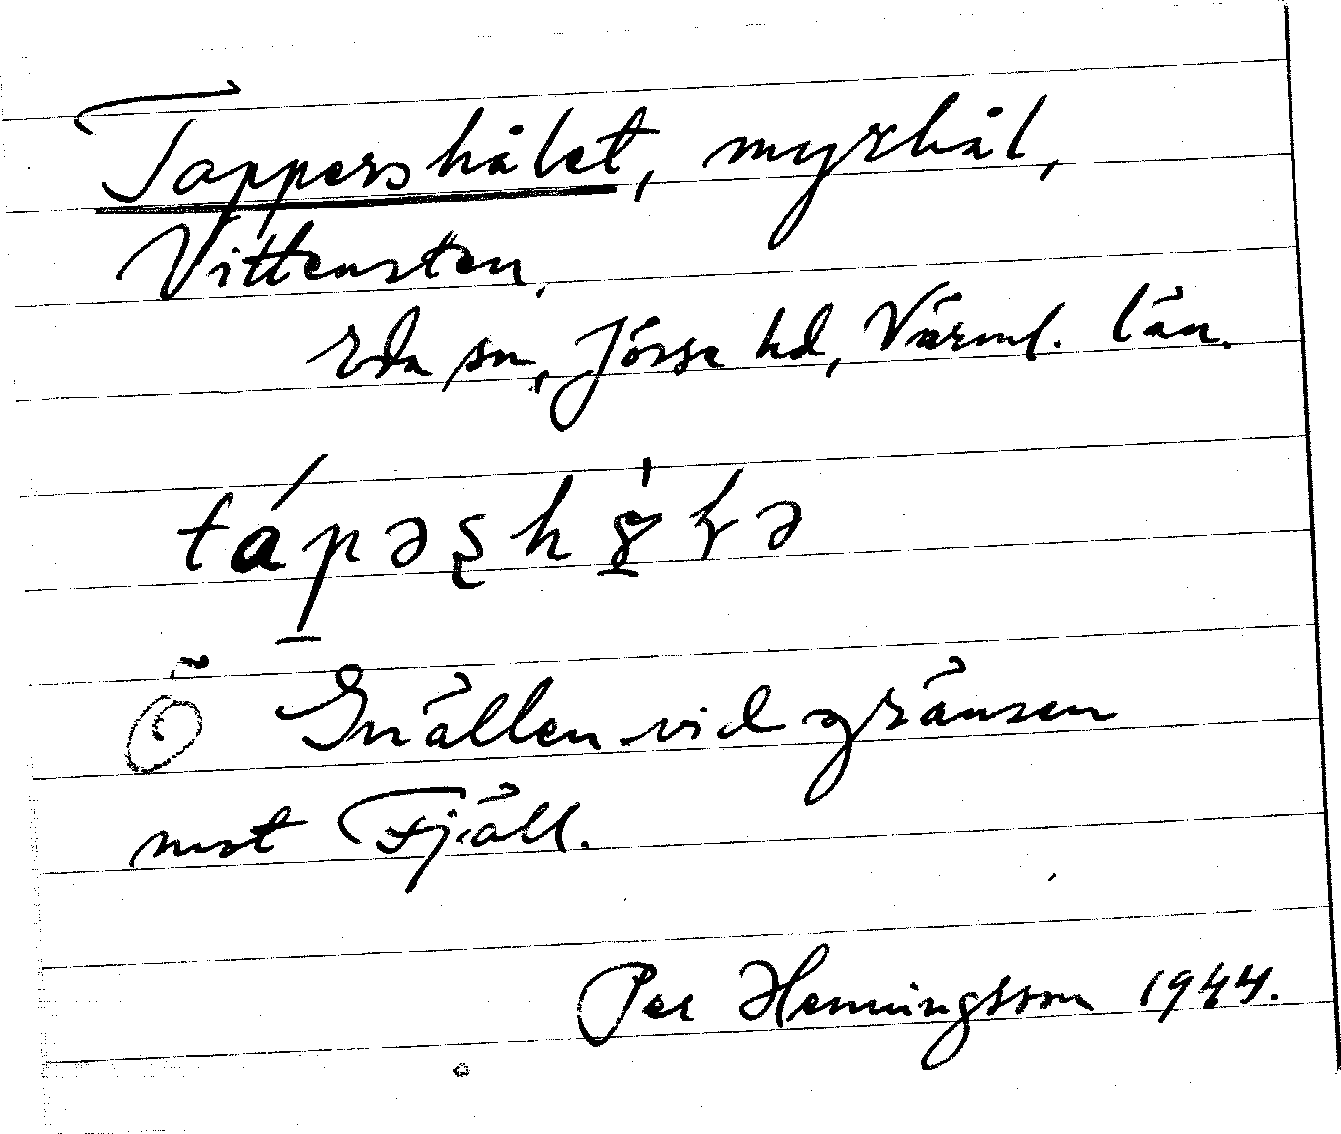 Tappershålet, myrhål,
Vittensten.
Eda sn, Jösse hd, Värml. län.
tápəʂh
Ö Gnällen vid gränsen
mot Fjäll.
Per Henningsson 1944.